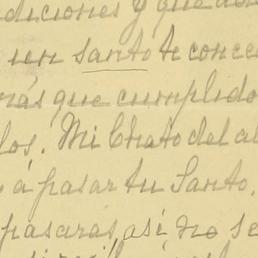 diciones y que
un santo te conce
más que cumplido
los. Mi Chato del al
á pasar tu Santo.
pasaras, así, no se